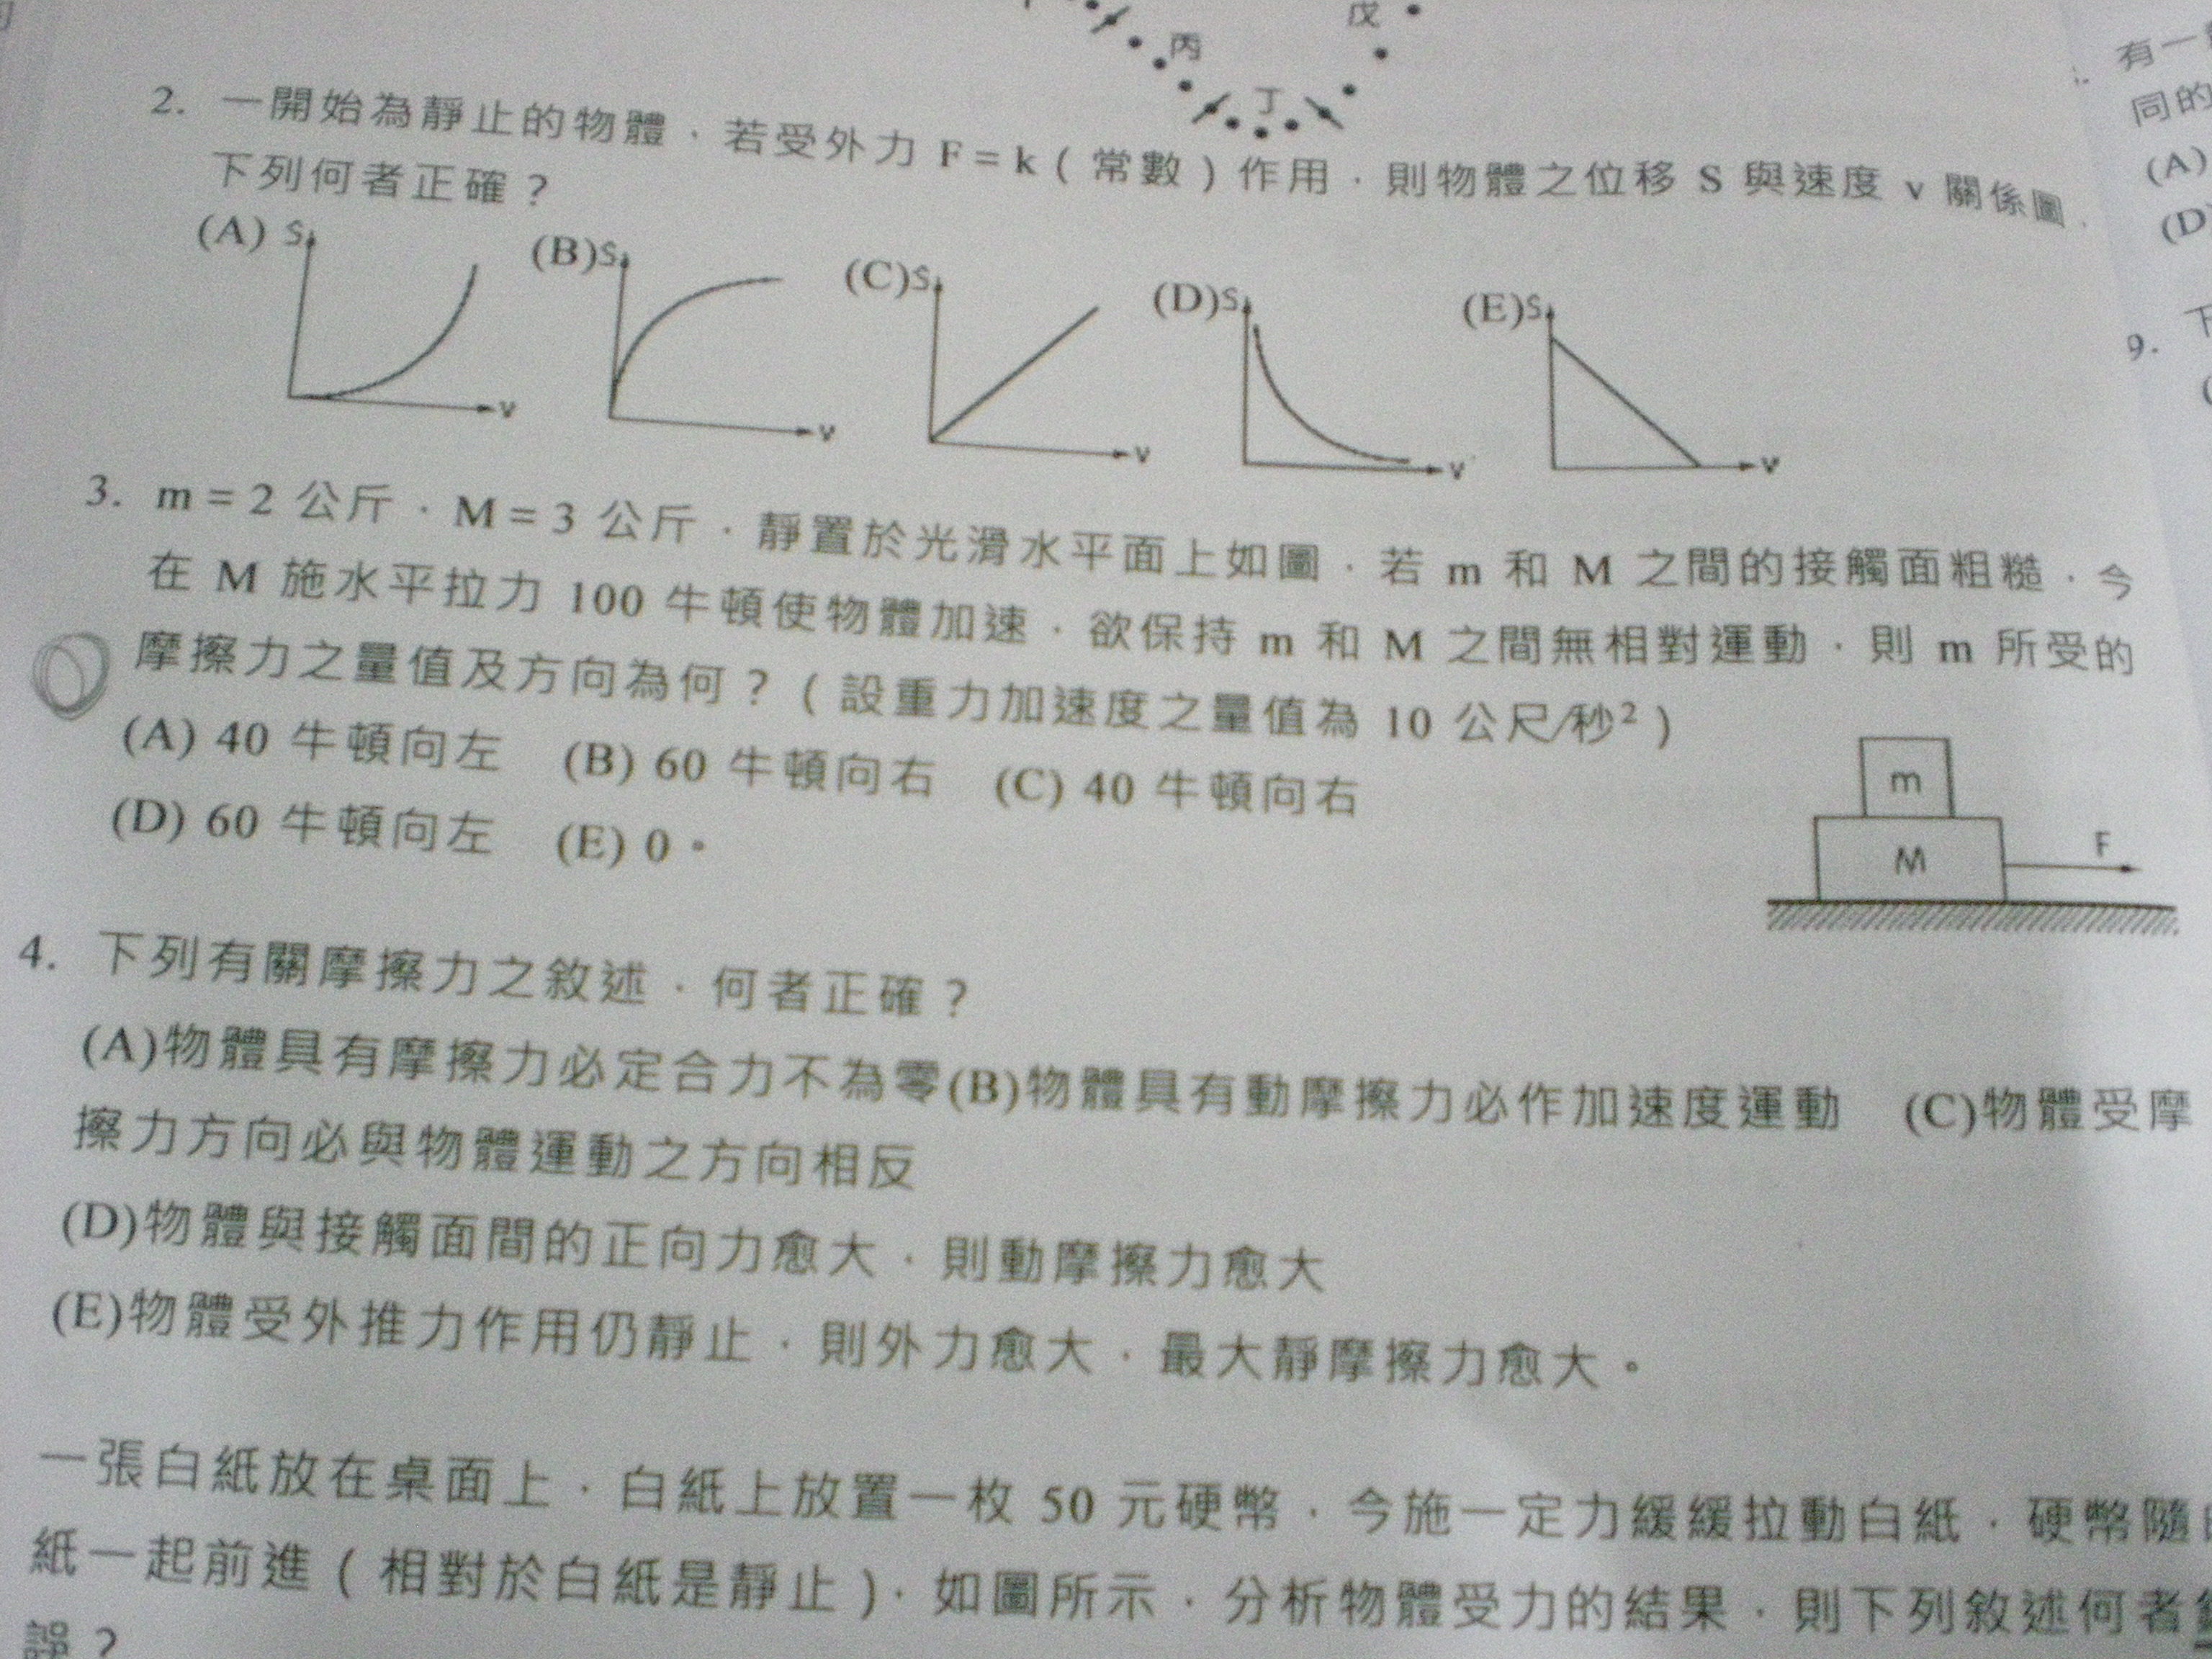 丙
丁
戊
2. 一開始為靜止的物體，若受外力 F = k（常數）作用，則物體之位移 S 與速度 v 關係圖，
下列何者正確？
(A) S v (B) S v (C) S v (D) S v (E) S v
3. m = 2 公斤，M = 3 公斤，靜置於光滑水平面上如圖，若 m 和 M 之間的接觸面粗糙，今
在 M 施水平拉力 100 牛頓使物體加速，欲保持 m 和 M 之間無相對運動，則 m 所受的
摩擦力之量值及方向為何？（設重力加速度之量值為 10 公尺/秒²）
(A) 40 牛頓向左 (B) 60 牛頓向右 (C) 40 牛頓向右
(D) 60 牛頓向左 (E) 0。
m
M
F
4. 下列有關摩擦力之敘述，何者正確？
(A)物體具有摩擦力必定合力不為零(B)物體具有動摩擦力必作加速度運動 (C)物體受摩
擦力方向必與物體運動之方向相反
(D)物體與接觸面間的正向力愈大，則動摩擦力愈大
(E)物體受外推力作用仍靜止，則外力愈大，最大靜摩擦力愈大。
一張白紙放在桌面上，白紙上放置一枚 50 元硬幣，今施一定力緩緩拉動白紙，硬幣隨
紙一起前進（相對於白紙是靜止），如圖所示，分析物體受力的結果，則下列敘述何者
誤？
有一
同的
(A)
(D
9. 下